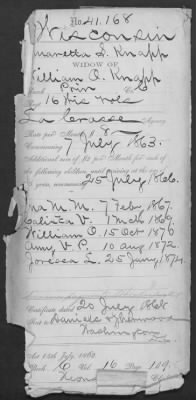 No. 41.168
Wisconsin
L. Knapp
WIDOW OF
William O. Knapp
Rank Priv Co.
Regt 16 Wis Vols
La Crosse Agency
Rate per Month $ 8
Commencing 7 July 1863.
Additional sum of $2 per Month for each of
the following children, until arriving at the age of
16 years, commencing 25 July 1866.
M. M. 7 Feby 1867.
V. 1 Mch 1869.
William O. 15 Oct 1870
Amy V. P. 10 Aug 1872.
L. 25 Jany 1874.
Certificate dated 20 July 1868
Sent to
Washington
Act 14th July 1862
Book Vol. 16 Page 109.